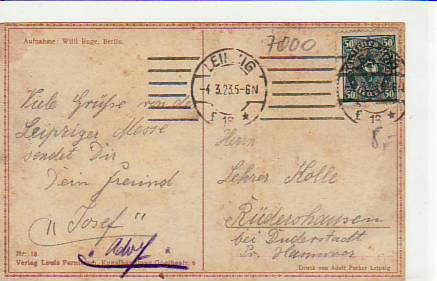 Aufnahme: Willi Ruge, Berlin.
7000
LEIPZIG
-4.3.23.5-6N
* 18 *
50 50
50 50
8,-
Viele Grüße von der
Leipziger Messe
sendet Dir
Dein Freund
"Josef"
Adolf
Herrn
Lehrer Holle
Rüdershausen
bei Duderstadt
Pr. Hannover
Nr. 18
Verlag Louis
Druck von Adolf Leipzig